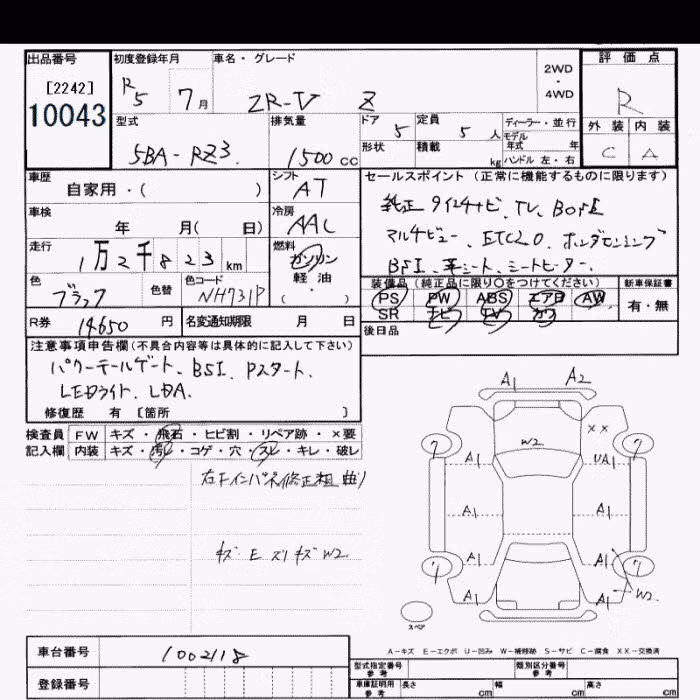 出品番号 初度登録年月 車名・グレード 2WD ・ 4WD 評価点
[2242] R5 7月 ZR-V Z R
10043
型式 排気量 ドア 5 定員 5人 ディーラー・並行 外装 内装
5BA-RZ3. 1500cc 形状 積載 kg モデル年式 年 C A
ハンドル 左・右
車歴 シフト セールスポイント(正常に機能するものに限ります)
自家用・( ) AT
車検 冷房
年 月( 日) AAC
純正
TV
マルチビュー、ETC2.0、ホンダセンシング
BSI、革シート、シートヒーター、
走行 燃料
1万2千823km ガソリン
軽油
( . )
色 色替 色コード
ブラック NH731P
装備品(純正品に限り〇をつけてください) 新車保証書
PS PW ABS エアB AW 有・無
SR ナビ TV カワ
R券 14650円 名変通知期限 月 日
後日品
注意事項申告欄(不具合内容等は具体的に記入して下さい)
パワーテールゲート、BSI、Pスタート、
LEDライト、LDA、
修復歴 有 〔箇所 〕
検査員 FW キズ・飛石・ヒビ割・リペア跡・×要
記入欄 内装 キズ・汚レ・コゲ・穴・スレ・キレ・破レ
右Fインパネ修正粗 曲り
キズ E ズリキズ W2
A1 A2
W2 ××
7 A1 UA1 7
A1 A1
A1 A1
7 7
A1 A1 W2
スペア
A-キズ E-エクボ U-凹み W-補修跡 S-サビ C-腐食 XX-交換済
車台番号 1002118
登録番号
型式指定番号 参考 類別区分番号 参考
車庫証明用 参考 長さ cm 幅 cm 高さ cm